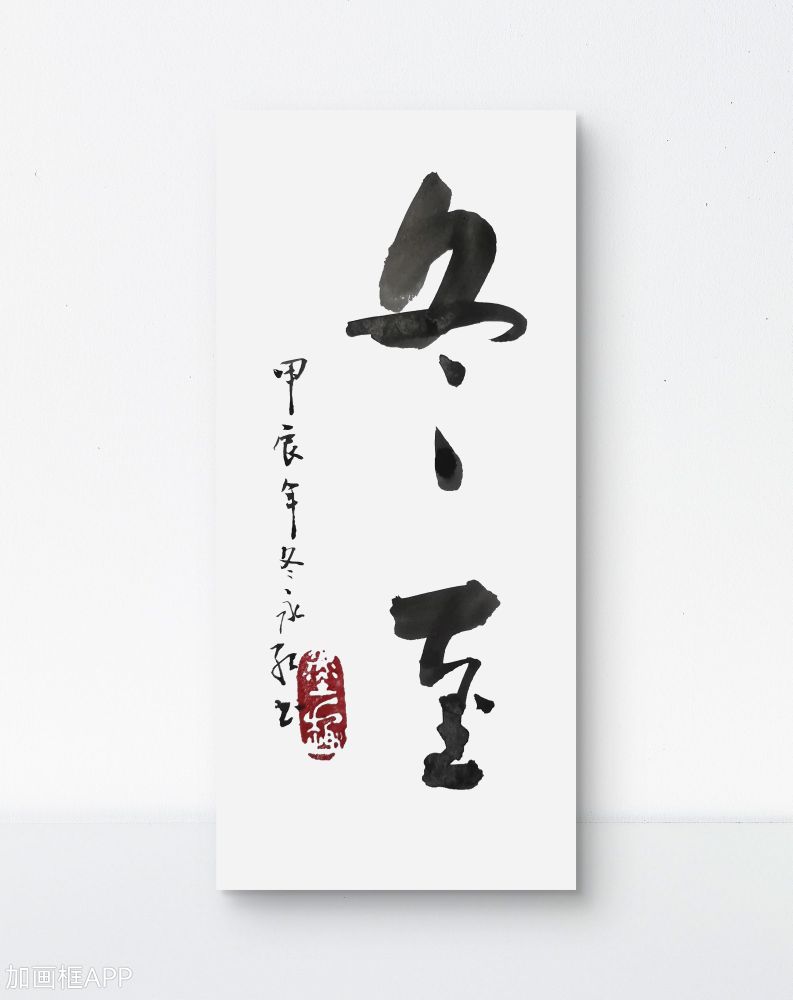 冬至
甲辰年冬永红书
加画框APP